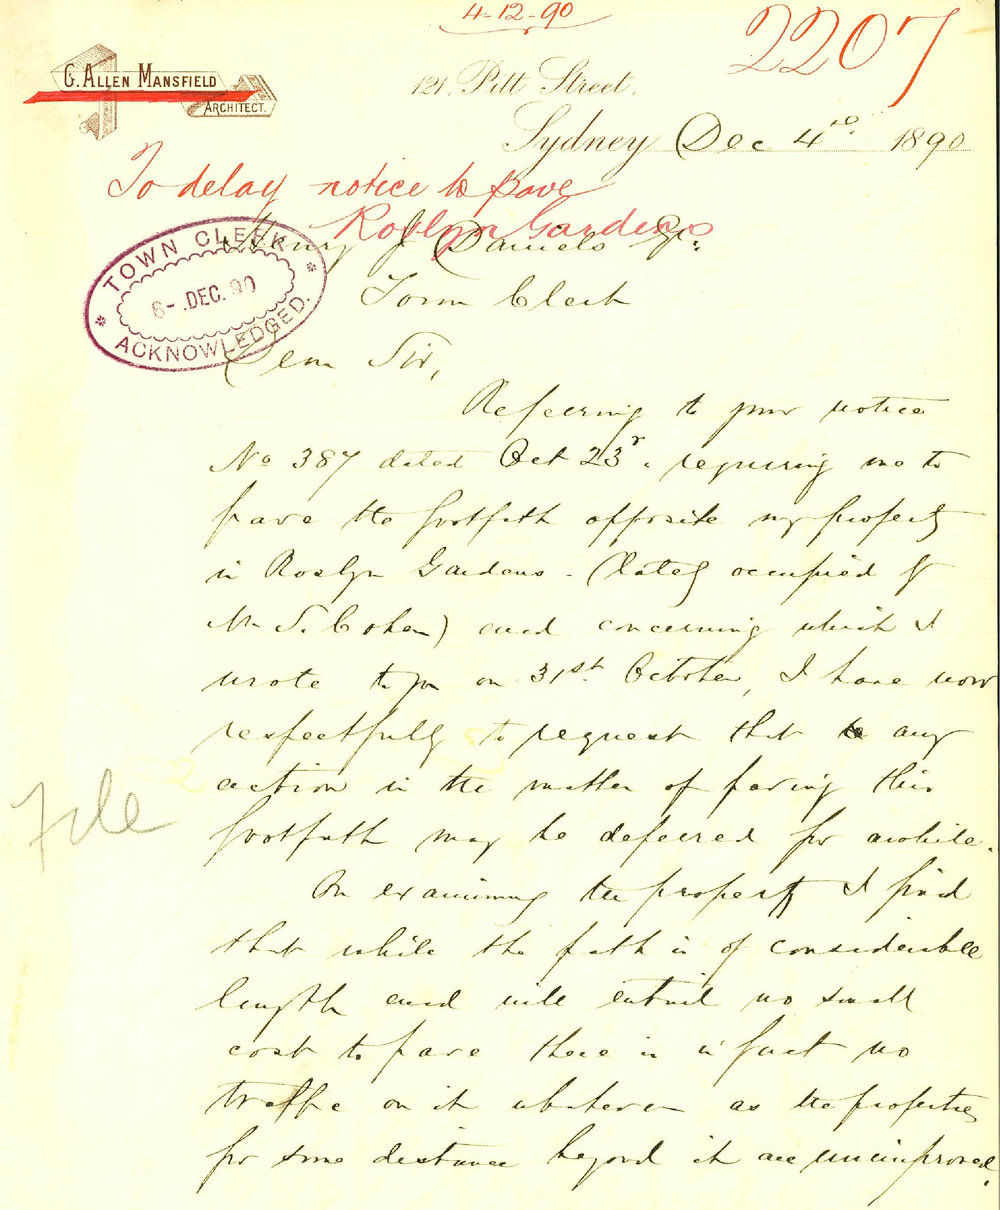 4-12-90
2207
G. ALLEN MANSFIELD
ARCHITECT.
121, Pitt Street,
Sydney Dec 4th 1890
To delay notice to pave
Roslyn Gardens
Henry J Daniels Esqr
Town Clerk
TOWN CLERK
6-.DEC.90
ACKNOWLEDGED.
Dear Sir,
Referring to your notice
No 387 dated Oct 23r. requiring me to
pave the footpath opposite my property
in Roslyn Gardens - (lately occupied by
Mr S. Cohen) and concerning which I
wrote to you on 31st October, I have now
respectfully to request that any
action in the matter of paving this
footpath may be deferred for awhile.
File
On examining the property I find
that while the path is of considerable
length and will entail no small
cost to pave there is in fact no
traffic on it whatever as the properties
for some distance beyond it are unimproved.